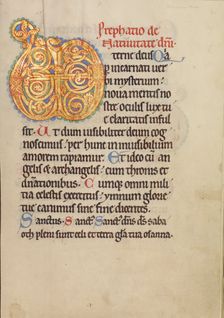 Prephatio de
Natiuitate dn̄i
terne deus Q̄a
p̄ incarnati uer
bi mysterium
noua mentis no
stre oculis lux tu
e claritatis inful
sit. Ut dum uisibiliter deum cog
noscimus, per hunc in inuisibilium
amorem rapiamur. Et ideo cū an
gelis & archangelis, cum thronis et
dn̄ationibus. Cumq; omni mili
tia celestis exercitus, ymnum glorie
tue canimus sine fine dicentes.
Sanctus. Sanct̄. Sanct̄. dn̄s ds̄ saba
oth pleni sunt celi et terra gl̄a tua osanna